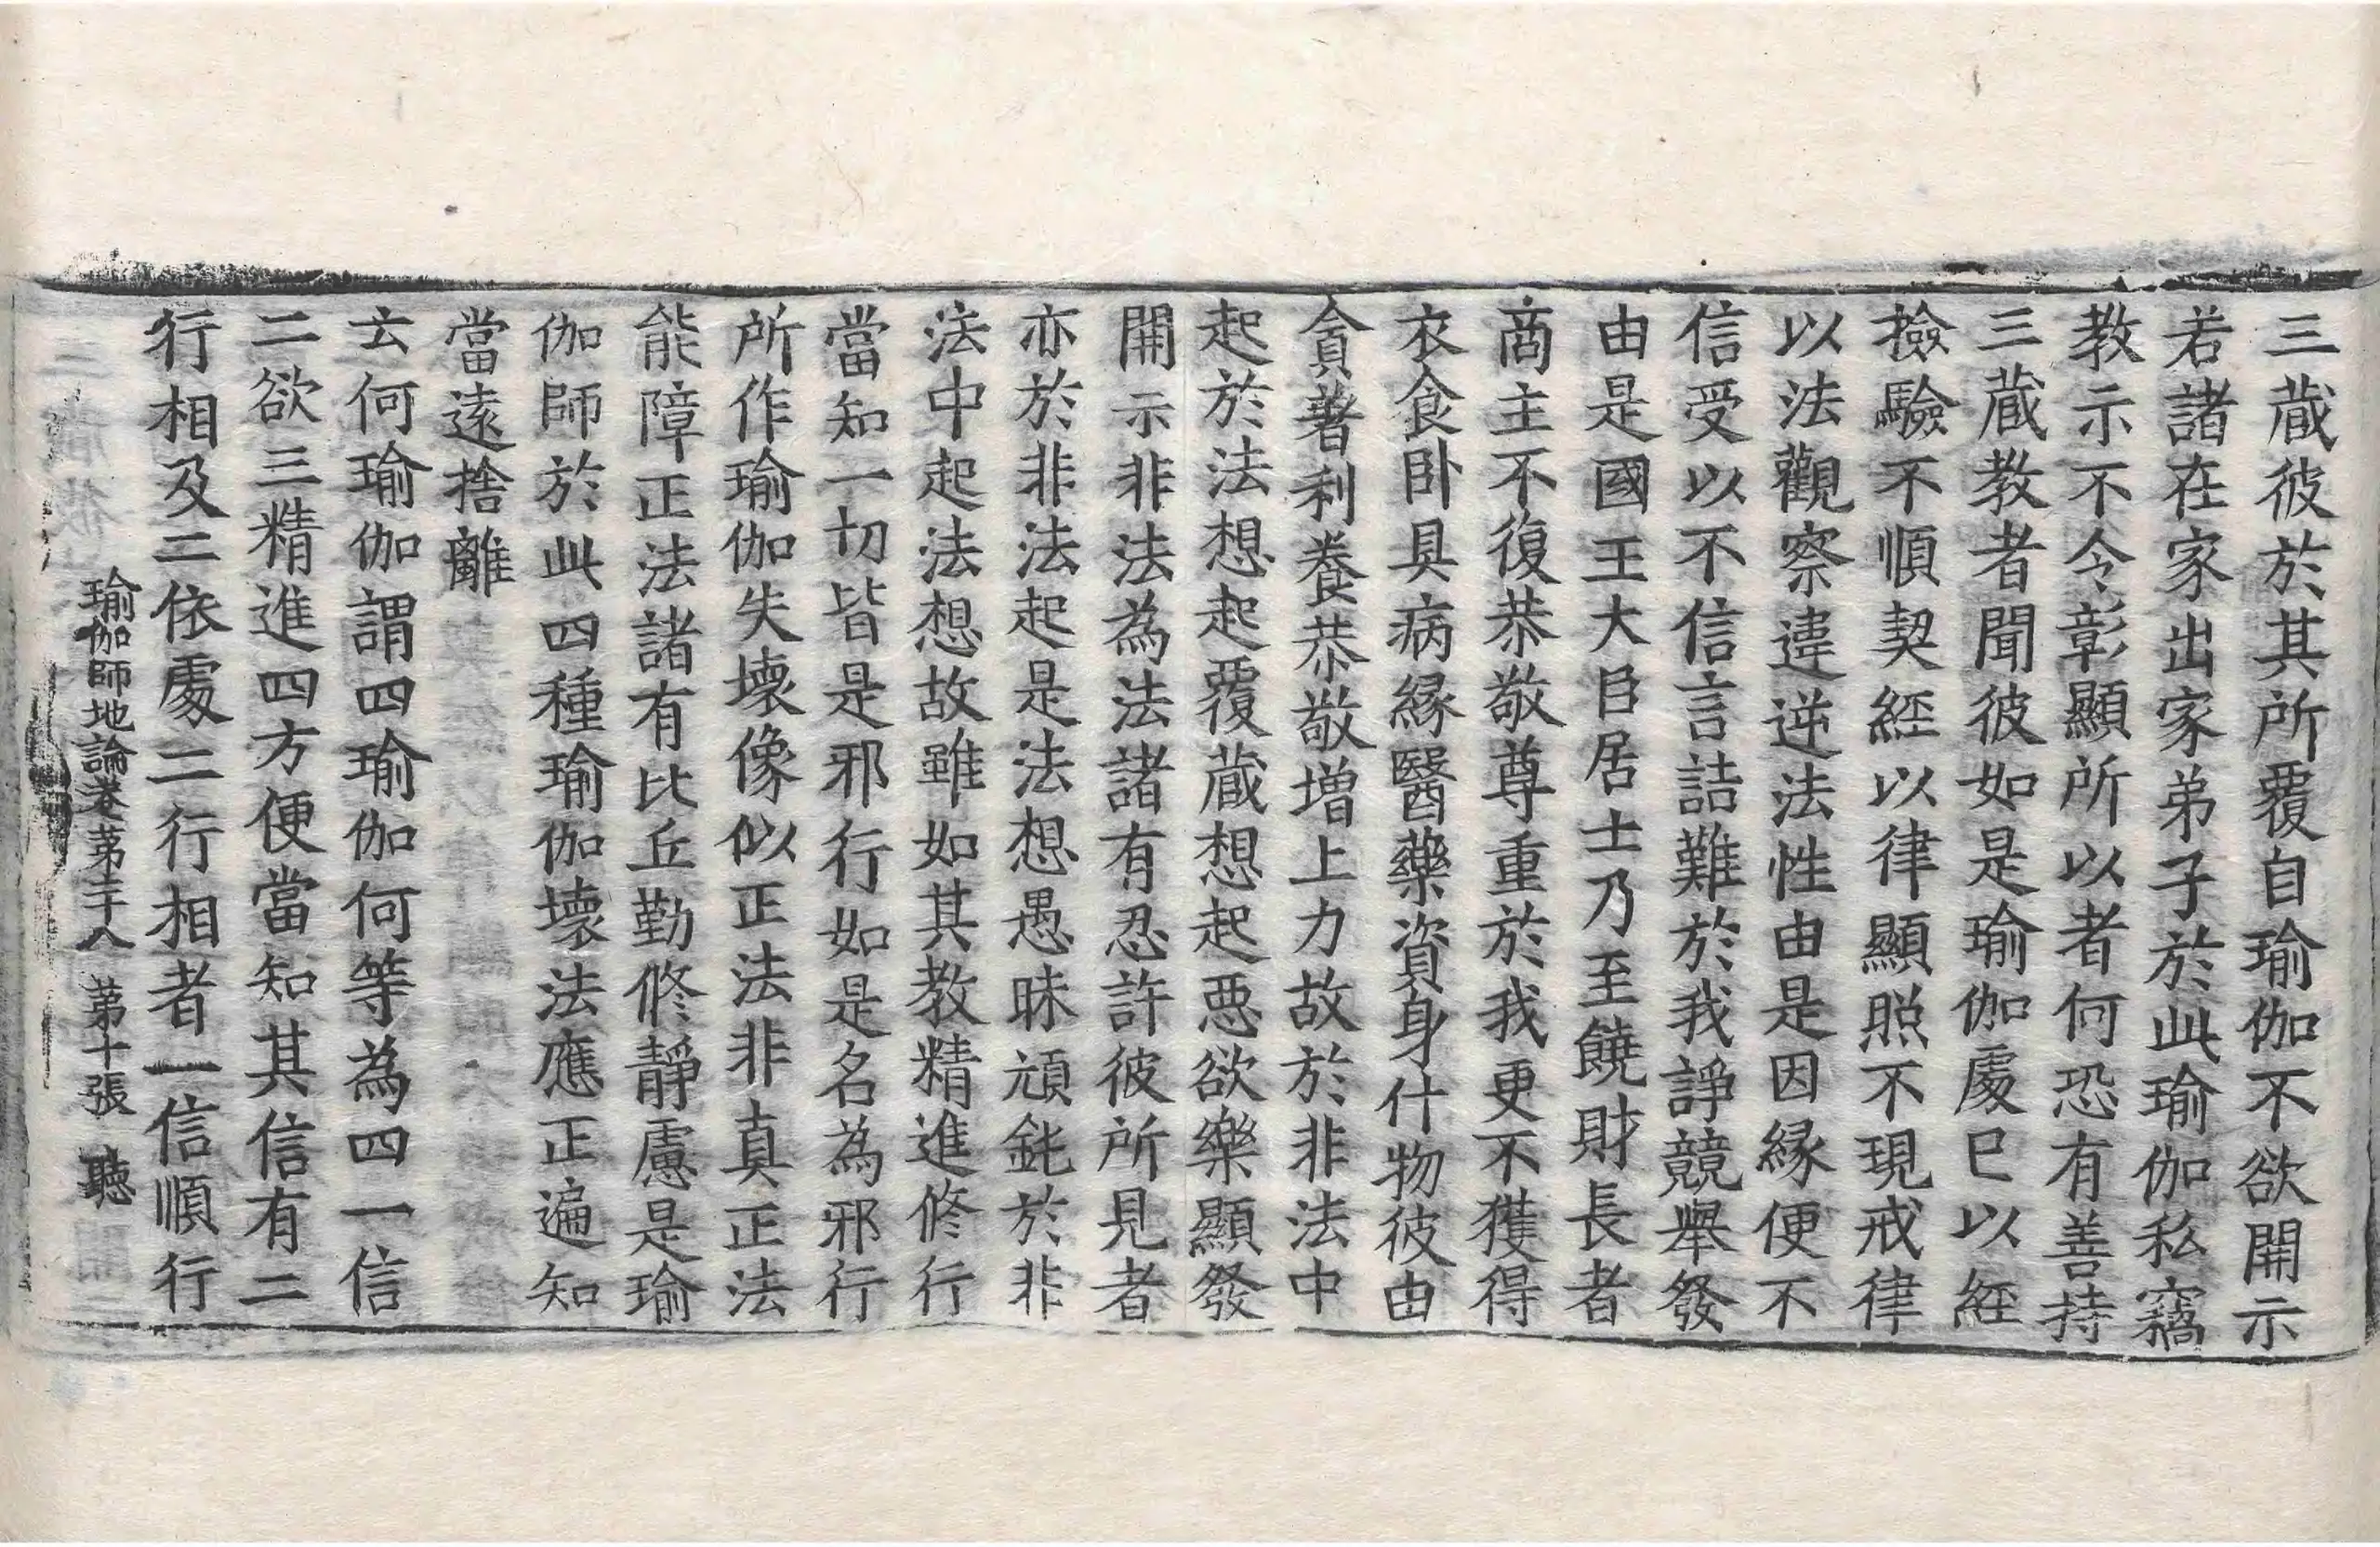 三蔵彼於其所覆自瑜伽不欲開示
若諸在家出家弟子於此瑜伽私竊
教示不令彰顯所以者何恐有善持
三蔵教者聞彼如是瑜伽處已以經
撿驗不順契經以律顯照不現戒律
以法觀察違逆法性由是因縁便不
信受以不信言詰難於我諍競舉發
由是國王大臣居士乃至饒財長者
商主不復恭敬尊重於我更不獲得
衣食卧具病縁醫藥資身什物彼由
貪著利養恭敬增上力故於非法中
起於法想起覆蔵想起惡欲樂顯發
開示非法為法諸有忍許彼所見者
亦於非法起是法想愚昧頑鈍於非
法中起法想故雖如其教精進修行
當知一切皆是邪行如是名為邪行
所作瑜伽失壞像似正法非真正法
能障正法諸有比丘勤修靜慮是瑜
伽師於此四種瑜伽壞法應正遍知
當遠捨離
云何瑜伽謂四瑜伽何等為四一信
二欲三精進四方便當知其信有二
行相及二依處二行相者一信順行
瑜伽師地論卷第二十八 第十張 聽